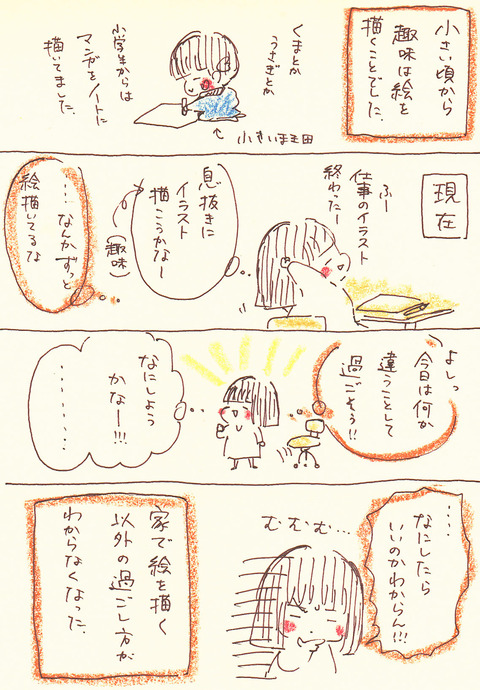 小さい頃から
趣味は絵を
描くことでした。
くまとか
うさぎとか
小学生からは
マンガをノートに
描いてました。
現在
ふー
仕事のイラスト
終わったー
息抜きに
イラスト
描こうかなー
(趣味)
…なんかずっと
絵描いてるな
よしっ
今日は何か
違うことして
過ごそう!!
なにしよっ
かなー!!!
………
‥‥
なにしたら
いいのかわからん!!!
むむむ…
家で絵を描く
以外の過ごし方が
わからなくなった。